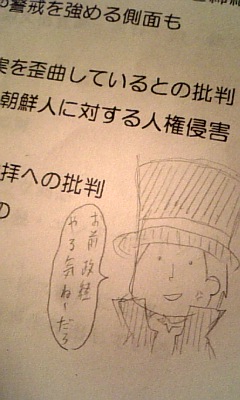 警戒を強める側面も
実を歪曲しているとの批判
朝鮮人に対する人権侵害
拝への批判
の
お前政経
やる気ねーだろ